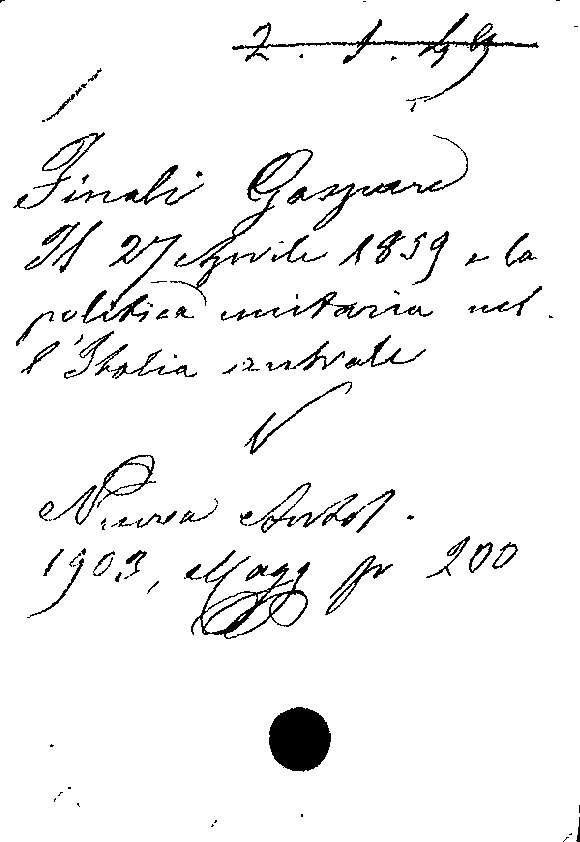 2. 1. 49
Finali Gaspare
Il 27 Aprile 1859 e la
politica unitaria nel
l'Italia centrale
V
Nuova Antol.
1903, Magg p 200